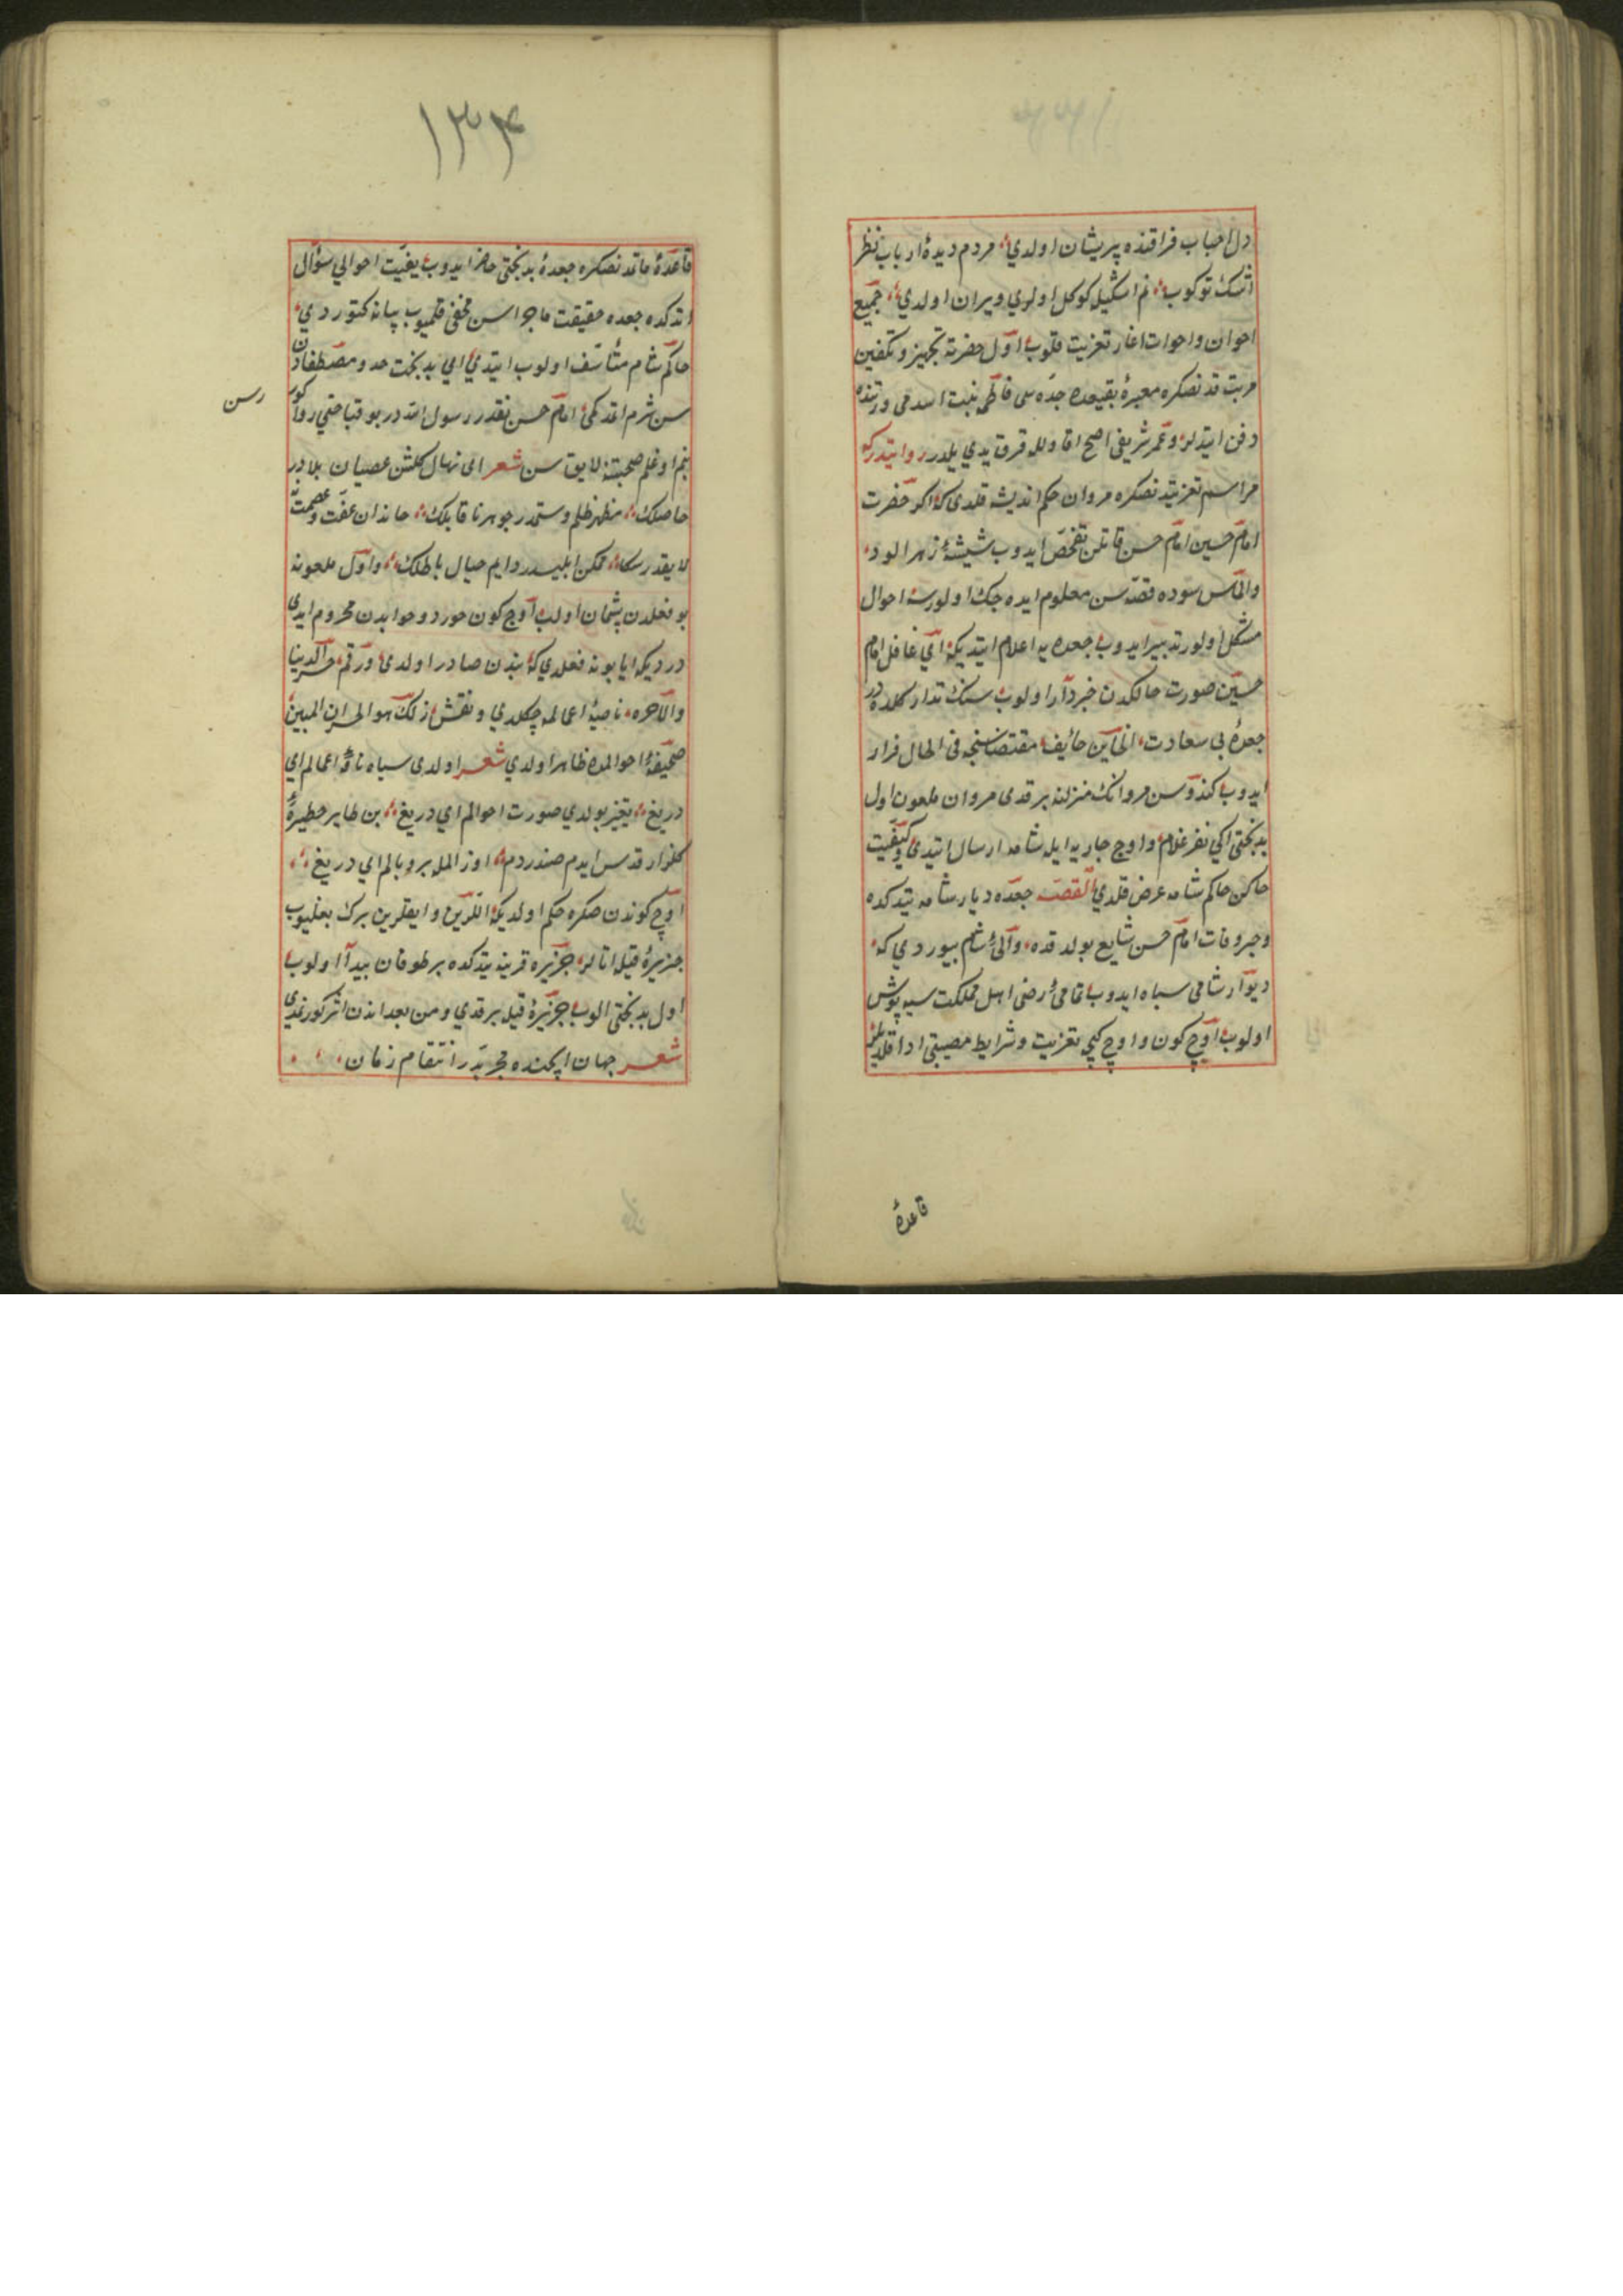 دل احباب فراقنده پریشان اولدي مردم دیدهٔ ارباب نظر
اشك توکوب نم اشکیله کوکل اولوي ویران اولدي جمیع
اخوان و اخوات اغاز تعزیت قلوب اول حضرته تجهیز و تکفین
مرتب قلدنصکره مقبرهٔ بقیعده جدّه سی فاطمه بنت اسد قورتنده
دفن ایتدلر و عمر شریفی اصح اقاویلله قرق یدي یلدر روایتدرکه
مراسم تعزیتدنصکره مروان حکم اندیشه قلدی که اکر حضرت
امام حسین امام حسن قاتلن تفحص ایدوب شیشهٔ زهرالود
والماس سوده قصه سن معلوم ایده جك اولورسه احوال
مشکل اولور تدبیر ایدوب جعده یه اعلام ایتدیکه ای غافل امام
حسین صورت حالکدن خبردار اولوب سنك تدارکنده در
جعدهٔ بی سعادت الخاین خائف مقتضاسنجه فی الحال فرار
ایدوب کندوسن مروانك منزلنه برقدی مروان ملعون اول
بدبختی ایکي نفر غلام و اوج جاریه ایله شامه ارسال ایتدی و کیفیت
حالن حاکم شامه عرض قلدي القصه جعده دیار شامه یتدکده
و خبر وفات امام حسن شایع بولدقده والیٔ شام بیوردي که
دیوار شامی سیاه ایدوب تمامیٔ رضی اهل مملکت سیه پوش
اولوب اوچ کون و اوچ کیجه تعزیت و شرایط مصیبتی ادا قلدیلر
قاعدهٔ
١٣٤
قاعدهٔ ماتمدنصکره جعدهٔ بدبختی حاضر ایدوب کیفیت احوالي سؤال
اتدکده جعده حقیقت ماجراسن مخفی قلمیوب بیانه کتوردي
حاکم شام متأسف اولوب ایتدي ای بدبخت خدا و مصطفادن
سن شرم اتمدك می امام حسن نقدر رسول الله در بو قباحتي روا کور
رسن
بنم اوغلم صحبتنه لایق سن شعر ای نهال کلشن عصیان بلادر
حاصلك مظهر ظلم و ستمدر جوهر ناقابلك خاندان عفت و عصمت
لایقدر سکا ممکن ابلیسدر دایم خیال باطلك و اول ملعونه
بو فعلدن پشمان اولب اوچ کون خورد و خوابدن محروم ایدی
در دیکه ایا بو نه فعلدي که بندن صادر اولدی و رقم خسر الدنیا
والاخره ناصیهٔ اعمالمه چکلدي و نقش ذلك هو الخسران المبین
صحیفهٔ احوالمده ظاهر اولدي شعر اولدی سیاه نامهٔ اعمالم ای
دریغ تغیر بولدي صورت احوالم ای دریغ بن طایر حظیرهٔ
کلزار قدس ایدم صندردم اوز المله بر و بالم ای دریغ
اوچ کوندن صکره حکم اولدیکه اللرین و ایقلرین برك بغلیوب
جزیرهٔ قیل اتالر جزیره قربنه یتدکده بر طوفان بیدا اولوب
اول بدبختی الوب جزیرهٔ قیل برقدي و من بعد اندن اثر کورنمدی
شعر جهان ایچنده مجربدر انتقام زمان